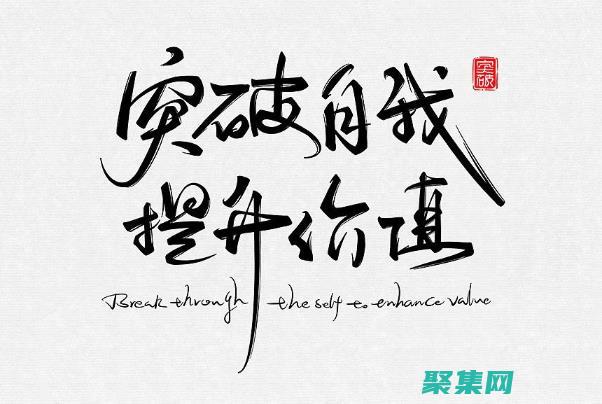 突破自我
突破
提升价值
Break through the self to enhance value
聚集网